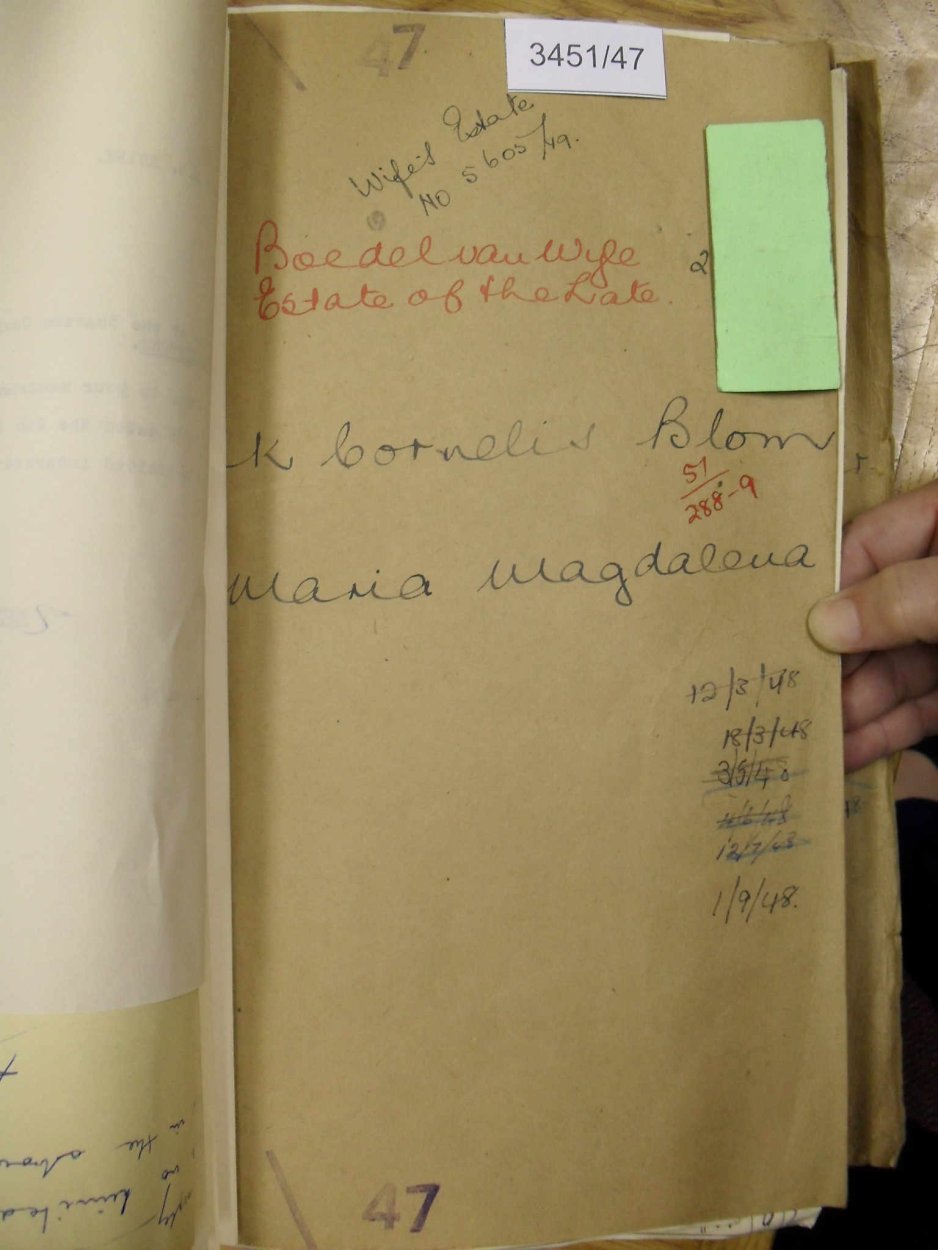 47
3451/47
Wife's Estate
No 5605/49.
Boedel van Wyle
Estate of the Late.
2
K Cornelis Blom
51
288-9
Maria Magdalena
12/3/48
18/3/48
3/5/48
4/6/48
12/7/48
1/9/48.
47
in the above